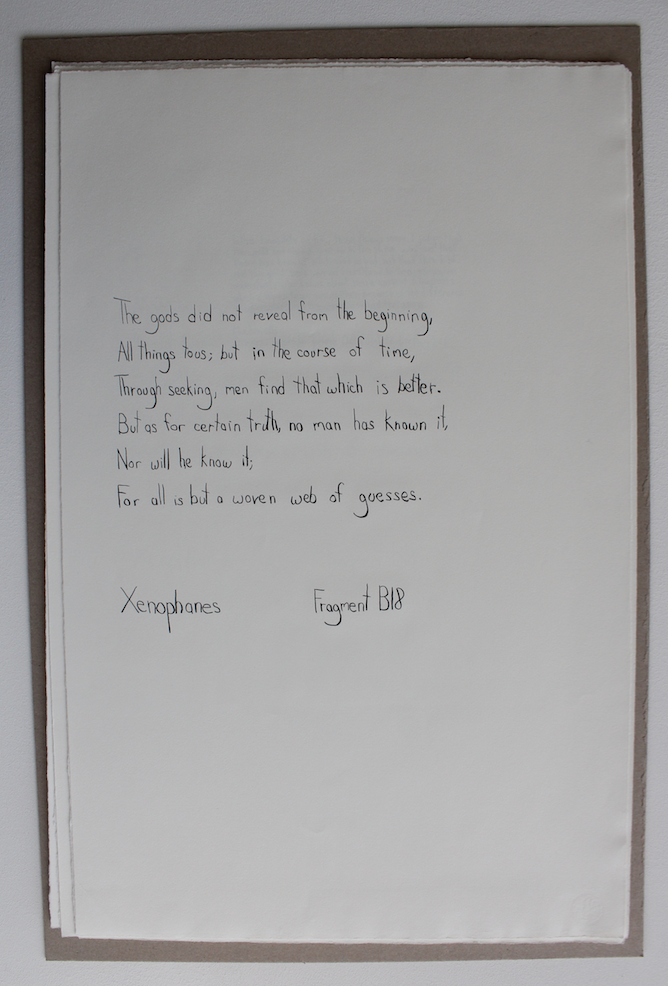 The gods did not reveal from the beginning,
All things to us; but in the course of time,
Through seeking, men find that which is better.
But as for certain truth, no man has known it,
Nor will he know it;
For all is but a woven web of guesses.
Xenophanes Fragment B18